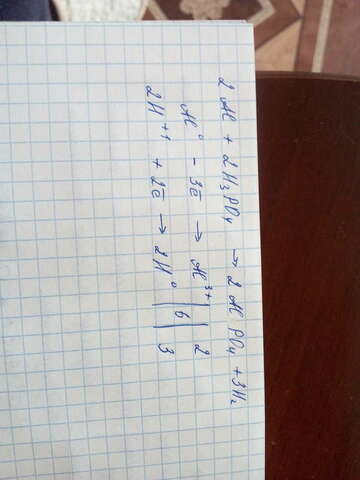 2 Al + 2H₃PO₄ → 2 Al PO₄ + 3H₂
Al⁰ - 3ē → Al³⁺ | | 2
2H⁺¹ + 2ē → 2H⁰ | 6 | 3